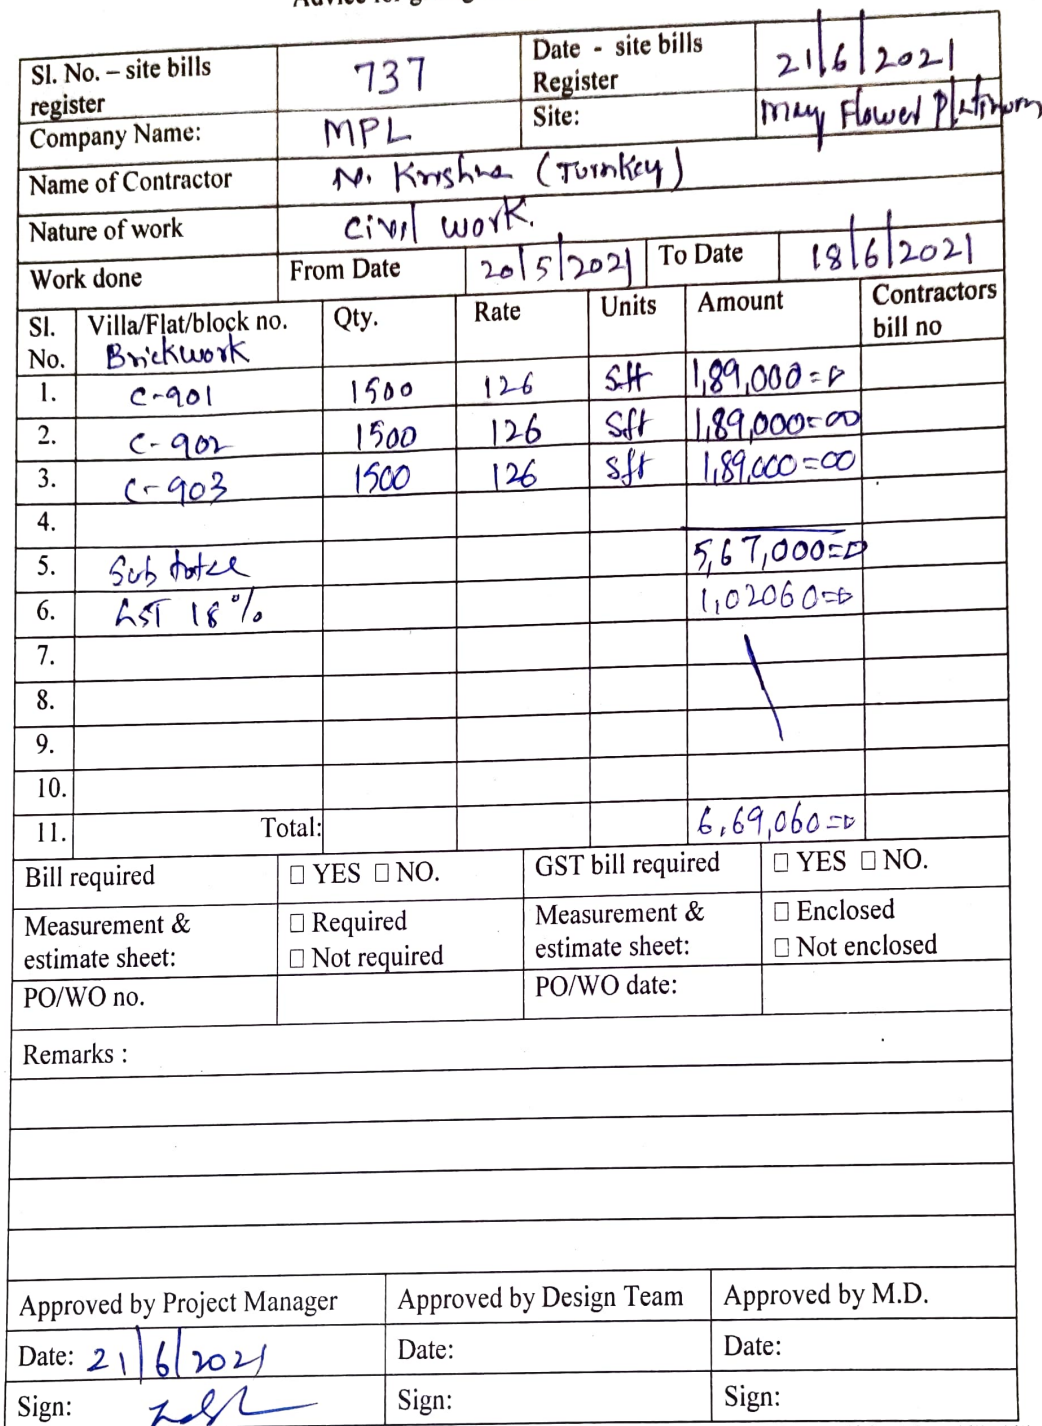 Sl. No. – site bills register 737 Date - site bills Register 21/6/2021
Company Name: MPL Site: May Flower Platinum
Name of Contractor N. Krishna (Turnkey)
Nature of work Civil work.
Work done From Date 20/5/2021 To Date 18/6/2021
Sl. No. Villa/Flat/block no. Qty. Rate Units Amount Contractors bill no
Brickwork
1. C-901 1500 126 Sft 1,89,000=00
2. C-902 1500 126 Sft 1,89,000=00
3. C-903 1500 126 Sft 1,89,000=00
4.
5. Sub total 5,67,000=00
6. GST 18% 1,02060=00
7.
8.
9.
10.
11. Total: 6,69,060=00
Bill required □ YES □ NO. GST bill required □ YES □ NO.
Measurement & estimate sheet: □ Required □ Not required Measurement & estimate sheet: □ Enclosed □ Not enclosed
PO/WO no. PO/WO date:
Remarks :
Approved by Project Manager Approved by Design Team Approved by M.D.
Date: 21/6/2021 Date: Date:
Sign: Sign: Sign: